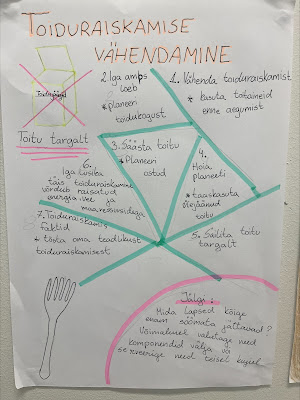 TOIDURAISKAMISE
VÄHENDAMINE
Toidujäägid
Toitu targalt
2. Iga amps
loeb
* Planeeri
toidukogust
1. Vähenda toiduraiskamist
* kasuta toiduaineid
enne aegumist
3. Säästa toitu
* Planeeri
ostud
4.
Hoia
planeeti
* taaskasuta
ülejäänud
toitu
5. Säilita toitu
targalt
6.
Iga lusika
täis toiduraiskamine
võrdub raisatud
energia, vee ja
maaressurssidega
7. Toiduraiskamise
faktid
* tõsta oma teadlikkust
toiduraiskamisest
Jälgi:
Mida lapsed kõige
enam söömata jätavad?
Võimalusel valetage need
komponendid välja või
serveerige need teisel kujul